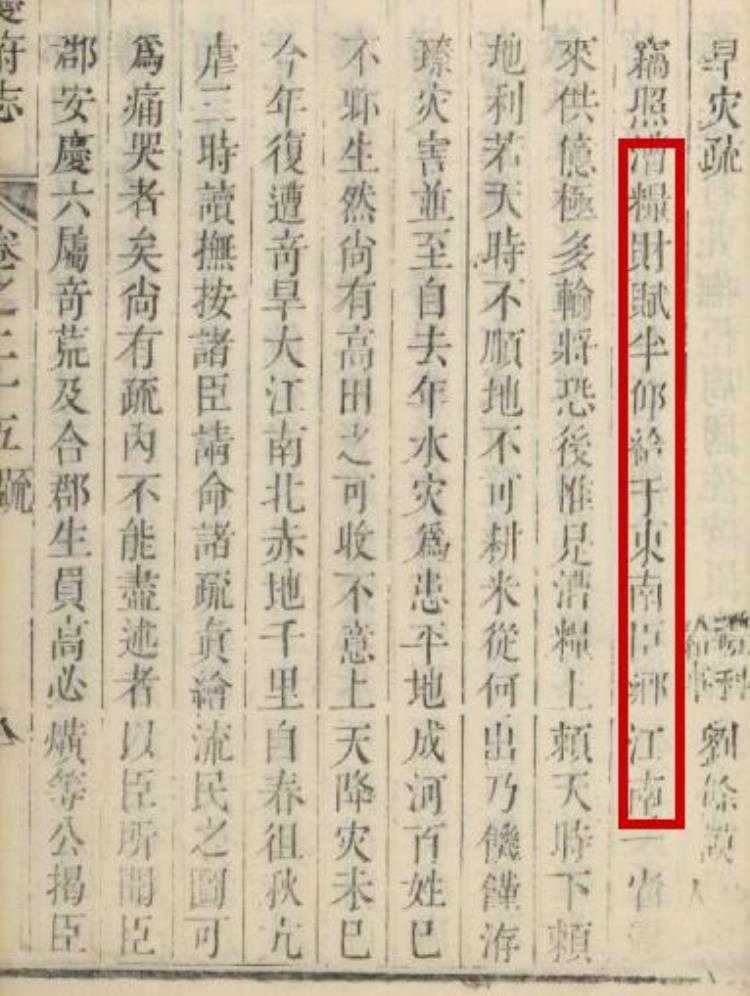 旱灾疏
劉餘謨
竊照漕糧財賦半仰給于東南臣鄉江南一省
來供億極多輸將恐後惟是漕糧上賴天時下賴
地利若天時不順地不可耕米從何出乃饑饉洊
臻灾害並至自去年水灾爲患平地成河百姓已
不聊生然尚有高田之可收不意上天降灾未已
今年復遭奇旱大江南北赤地千里自春徂秋亢
虐三時讀撫按諸臣請命諸疏眞繪流民之圖可
爲痛哭者矣尚有疏內不能盡述者以臣所聞臣
郡安慶六屬奇荒及合郡生員高必等公揭臣
慶府志
卷之二十五
疏